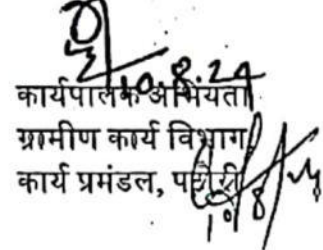 10.8.24
कार्यपालक अभियंता
ग्रामीण कार्य विभाग
कार्य प्रमंडल,
10/8/24